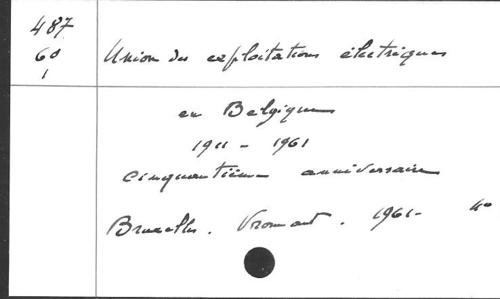 487
60
1
Union des exploitations électriques
en Belgique
1911 - 1961
cinquantième anniversaire
Bruxelles. Vromant. 1961- 4°